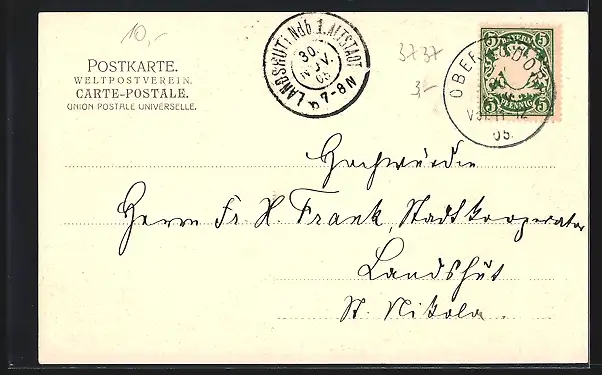 10,-
POSTKARTE.
WELTPOSTVEREIN.
CARTE-POSTALE.
UNION POSTALE UNIVERSELLE.
LANDSHUT i Ndb 1. ALTSTADT
30.
NOV.
05
7-8 N
3737
3,-
BAYERN
5 5
5 5
PFENNIG
05.
Hochwürden
Herrn Fr. X. Frank, Stadtkooperator
Landshut
St. Nikola.